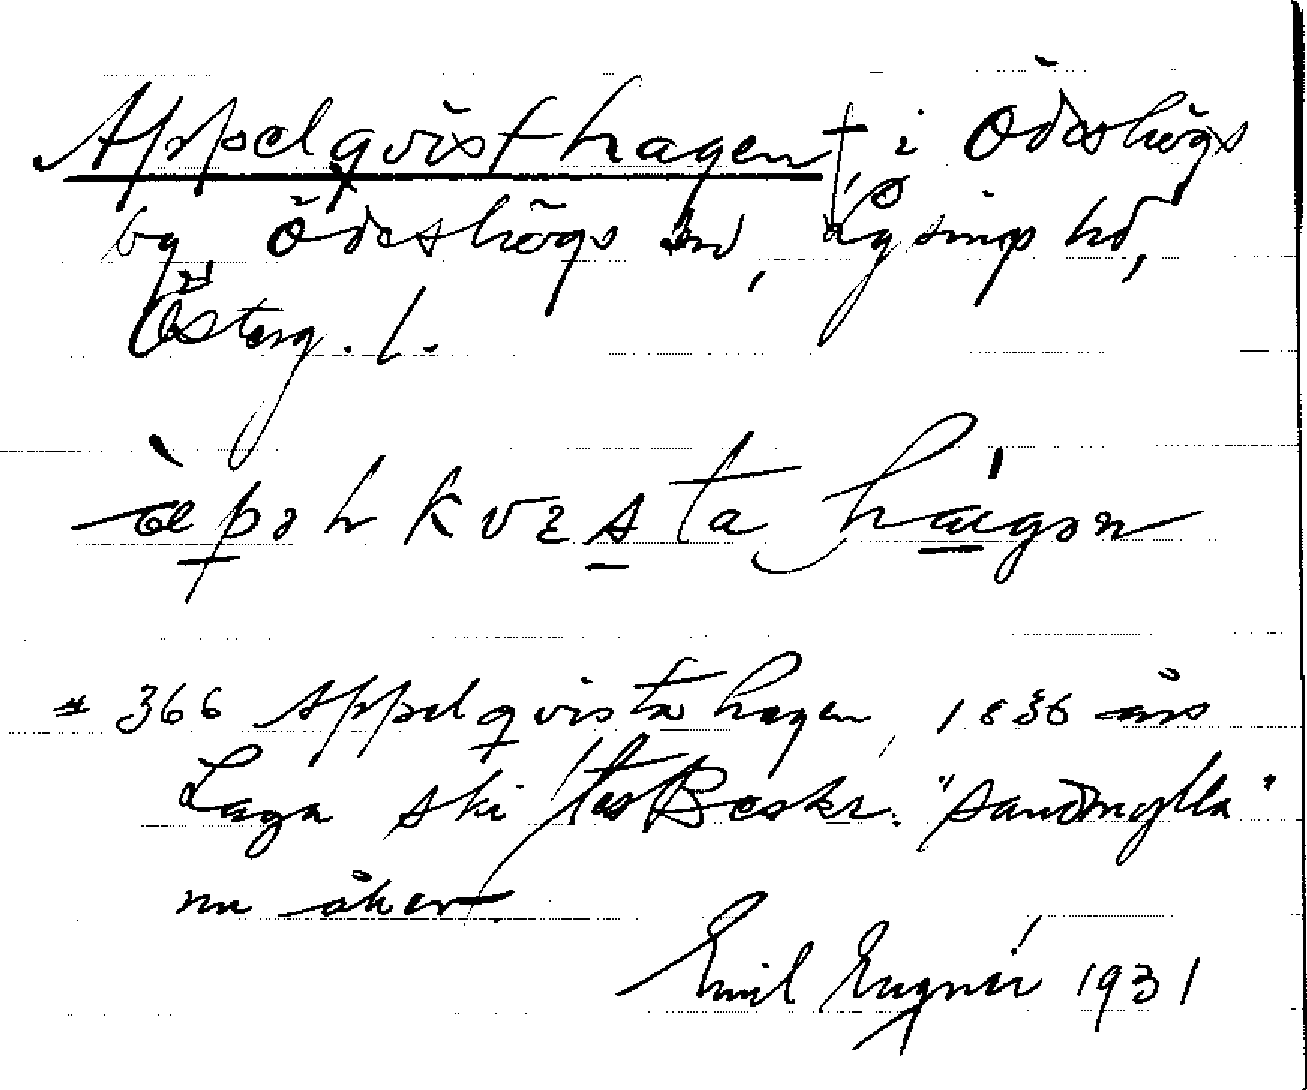 Appelqvisthagen † i Ödeshögs
by, Ödeshögs sn, Lysings hd,
Österg. l.
æ̀pəlkvɪsta hágən
# 366 Appelqvista hagen, 1836 års
Laga skiftes Beskr. "Sandmylla"
nu åker
Emil Engnér 1931